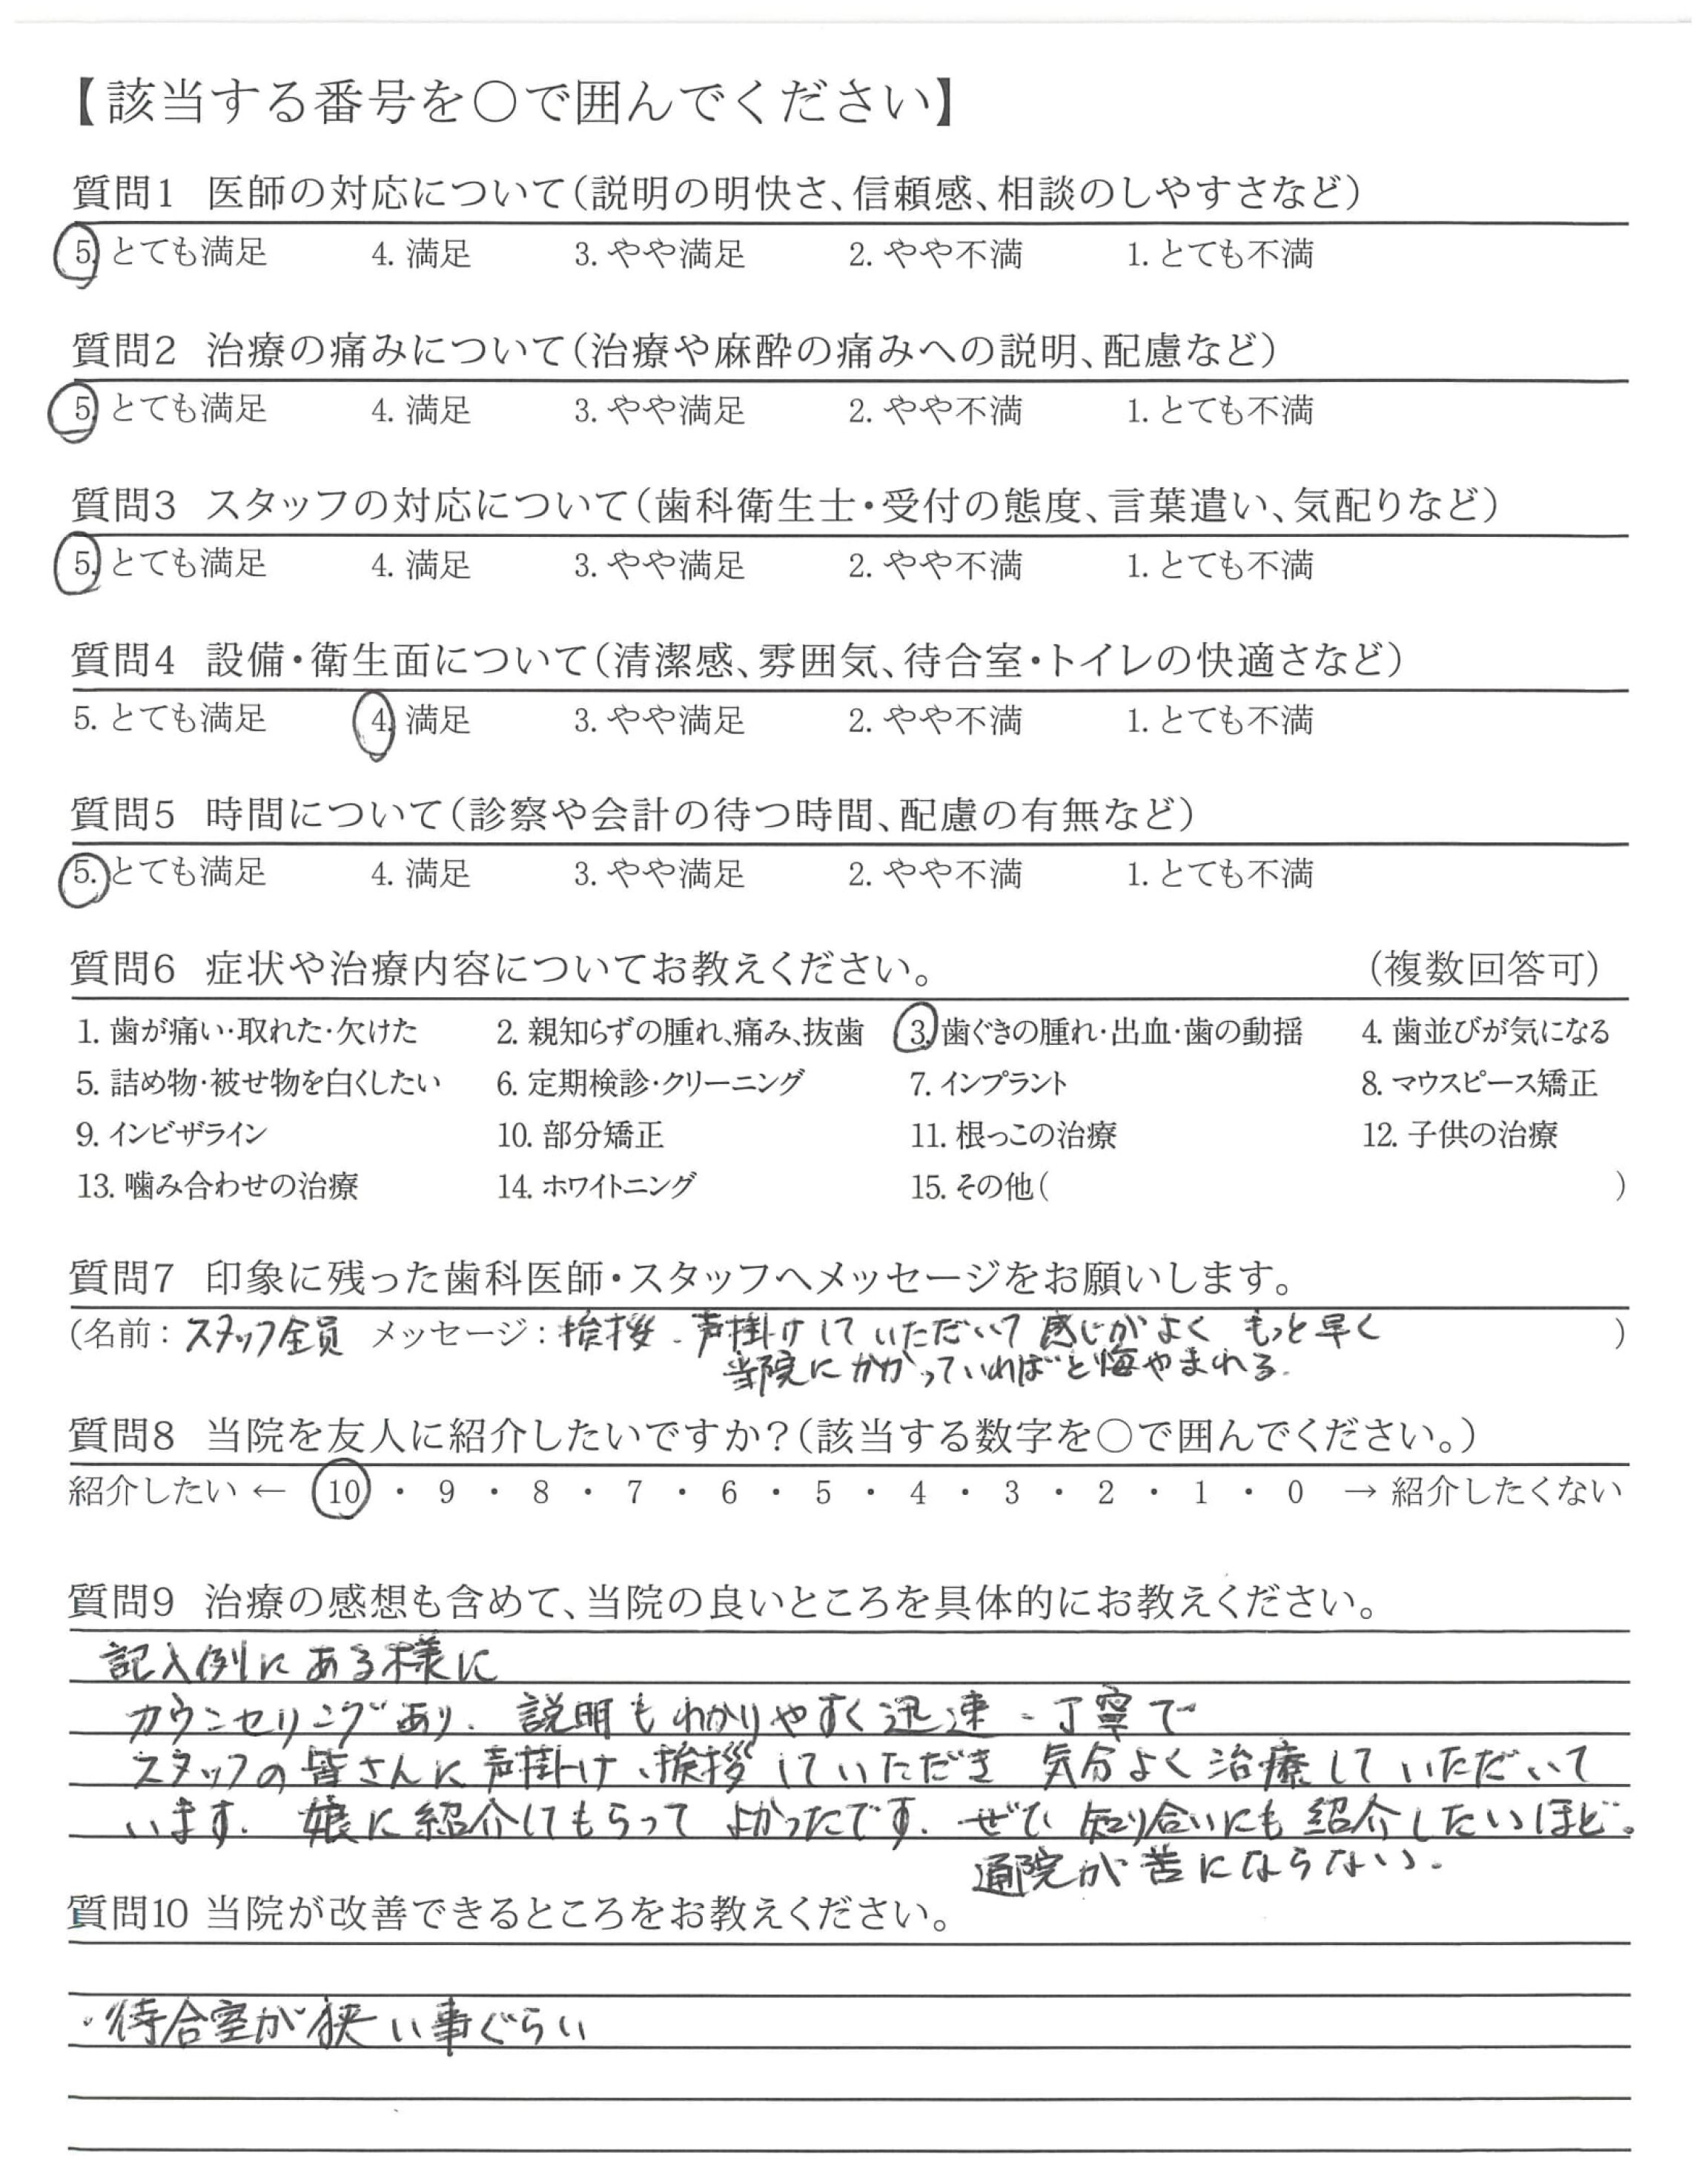 【該当する番号を○で囲んでください】
質問1 医師の対応について(説明の明快さ、信頼感、相談のしやすさなど)
5. とても満足 4. 満足 3. やや満足 2. やや不満 1. とても不満
質問2 治療の痛みについて(治療や麻酔の痛みへの説明、配慮など)
5. とても満足 4. 満足 3. やや満足 2. やや不満 1. とても不満
質問3 スタッフの対応について(歯科衛生士・受付の態度、言葉遣い、気配りなど)
5. とても満足 4. 満足 3. やや満足 2. やや不満 1. とても不満
質問4 設備・衛生面について(清潔感、雰囲気、待合室・トイレの快適さなど)
5. とても満足 4. 満足 3. やや満足 2. やや不満 1. とても不満
質問5 時間について(診察や会計の待つ時間、配慮の有無など)
5. とても満足 4. 満足 3. やや満足 2. やや不満 1. とても不満
質問6 症状や治療内容についてお教えください。 (複数回答可)
1. 歯が痛い・取れた・欠けた 2. 親知らずの腫れ、痛み、抜歯 3. 歯ぐきの腫れ・出血・歯の動揺 4. 歯並びが気になる
5. 詰め物・被せ物を白くしたい 6. 定期検診・クリーニング 7. インプラント 8. マウスピース矯正
9. インビザライン 10. 部分矯正 11. 根っこの治療 12. 子供の治療
13. 噛み合わせの治療 14. ホワイトニング 15. その他( )
質問7 印象に残った歯科医師・スタッフへメッセージをお願いします。
(名前: スタッフ全員 メッセージ: 挨拶、声掛けしていただいて 感じがよく もっと早く )
当院にかかっていればと悔やまれる.
質問8 当院を友人に紹介したいですか?(該当する数字を○で囲んでください。)
紹介したい ← 10 ・ 9 ・ 8 ・ 7 ・ 6 ・ 5 ・ 4 ・ 3 ・ 2 ・ 1 ・ 0 → 紹介したくない
質問9 治療の感想も含めて、当院の良いところを具体的にお教えください。
記入例にある様に
カウンセリングあり. 説明もわかりやすく迅速、丁寧で
スタッフの皆さんに声掛け、挨拶していただき 気分よく治療していただいて
います. 娘に紹介してもらって よかったです. ぜひ 知り合いにも紹介したいほど。
通院が苦にならない.
質問10 当院が改善できるところをお教えください。
・待合室が狭い事ぐらい